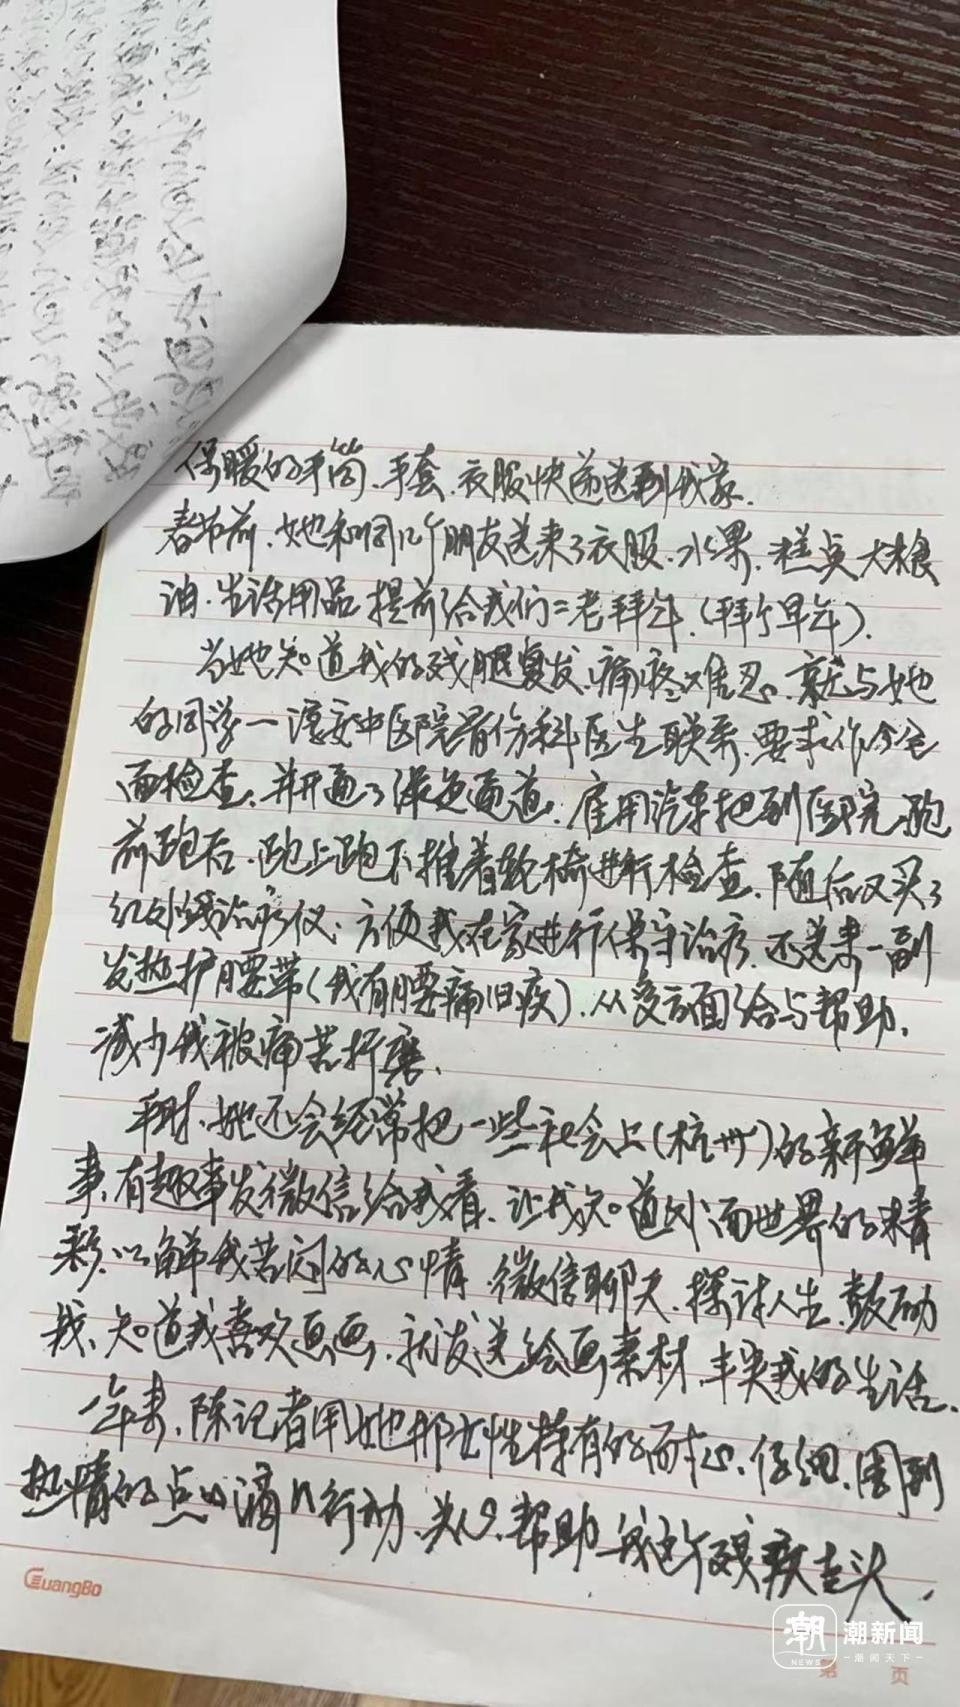 保暖的手筒、手套、衣服快递送到我家.
春节前、她和同几个朋友送来了衣服、水果、糕点、大米食
油、生活用品提前给我们二老拜年.(拜个早年).
当她知道我的残腿复发、痛疼难忍、就与她
的同学一淳安中医院骨伤科医生联系、要求作全
面检查、并开通了绿色通道、雇用汽车把到医院、跑
前跑后、跑上跑下推着轮椅进行检查、随后又买了
红外线治疗仪、方便我在家进行保守治疗、还送来一副
发热护腰带(我有腰痛旧疾)、从多方面给与帮助、
减少我被痛苦折磨、
平时、她还会经常把一些社会上(杭州)的新鲜
事、有趣事发微信给我看、让我知道外面世界的精
彩、以解我苦闷的心情、微信聊天、探讨人生、鼓励
我、知道我喜欢画画、就发送绘画素材、丰实我的生活、
年来、陈记者用她那女性特有的耐心、仔细、周到
热情的点点滴滴行动、关心、帮助我这个残疾老头、
GuangBo
潮 NEWS
潮新闻
潮闻天下
第 页